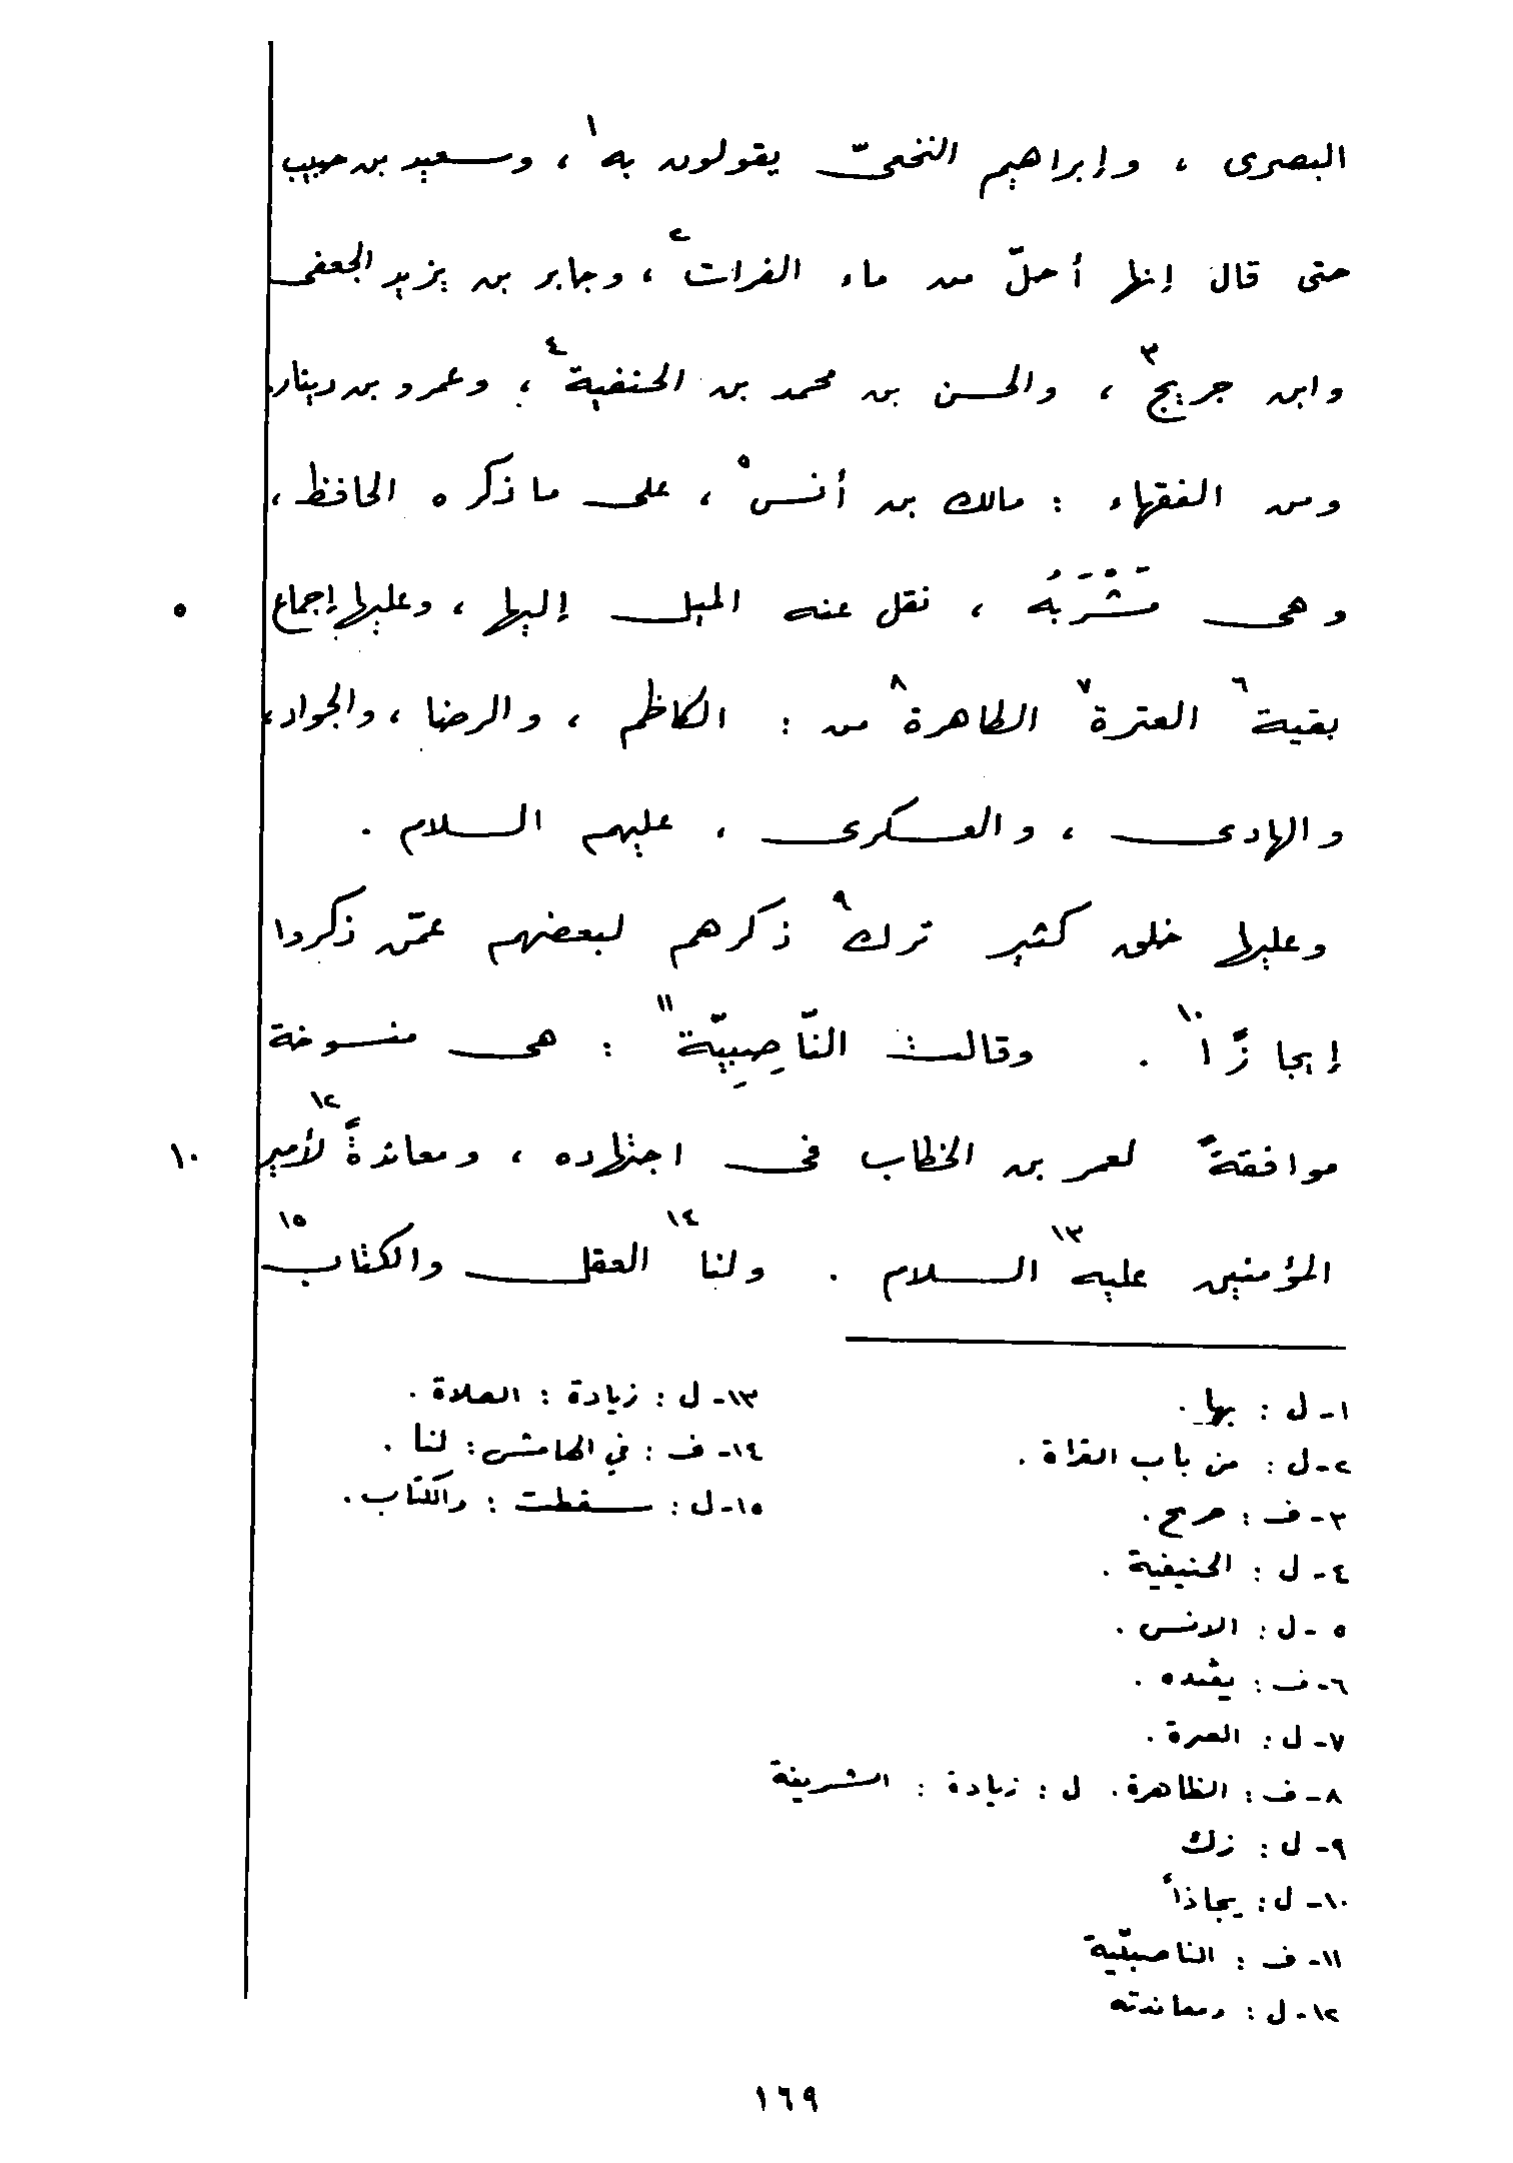 البصرى ، وإبراهيم النخعىّ يقولون به١ ، وسعيد بن حبيب
حتى قال إنها أحلّ من ماء الفرات٢ ، وجابر بن يزيد الجعفى
وابن جريج٣ ، والحسن بن محمد بن الحنفية٤ ، وعمرو بن دينار
ومن الفقهاء : مالك بن أنس٥ ، على ما ذكره الحافظ ،
وهى مَشْرَبُهُ ، نقل عنه الميل إليها ، وعليها إجماع ٥
بقية٦ العترة٧ الطاهرة٨ من : الكاظم ، والرضا ، والجواد ،
والهادى ، والعسكرى ، عليهم السلام .
وعليها خلق كثير ترك٩ ذكرهم لبعضهم عمّن ذكروا
إيجازًا١٠ . وقالت النّاصِبِيّة١١ : هى منسوخة
موافقةً لعمر بن الخطاب فى اجتهاده ، ومعاندةً١٢ لأمير ١٠
المؤمنين عليه١٣ السلام . ولنا١٤ العقل والكتاب١٥
١- ل : بها .
٢- ل : من باب القراة .
٣- ف : حريح .
٤- ل : الحنيفية .
٥- ل : الانس .
٦- ف : يفنده .
٧- ل : العرة .
٨- ف : الظاهرة . ل : زيادة : الشريفة
٩- ل : زك
١٠- ل : يجاذاً
١١- ف : الناصبّية
١٢- ل : ومعاندته
١٣- ل : زيادة : الصلاة .
١٤- ف : في الهامش : لنا .
١٥- ل : سقطت : والكتاب .
١٦٩